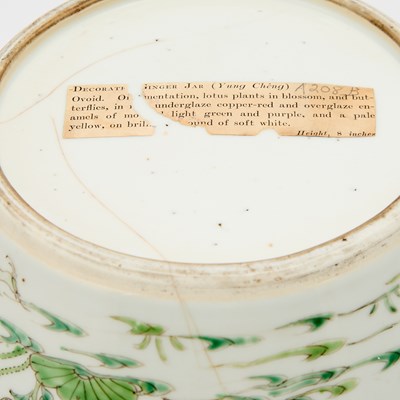 DECORATE GINGER JAR (Yung Chêng) A208 B
Ovoid. Or mentation, lotus plants in blossom, and but-
terflies, in underglaze copper-red and overglaze en-
amels of mo light green and purple, and a pale
yellow, on bril und of soft white.
Height, 8 inches